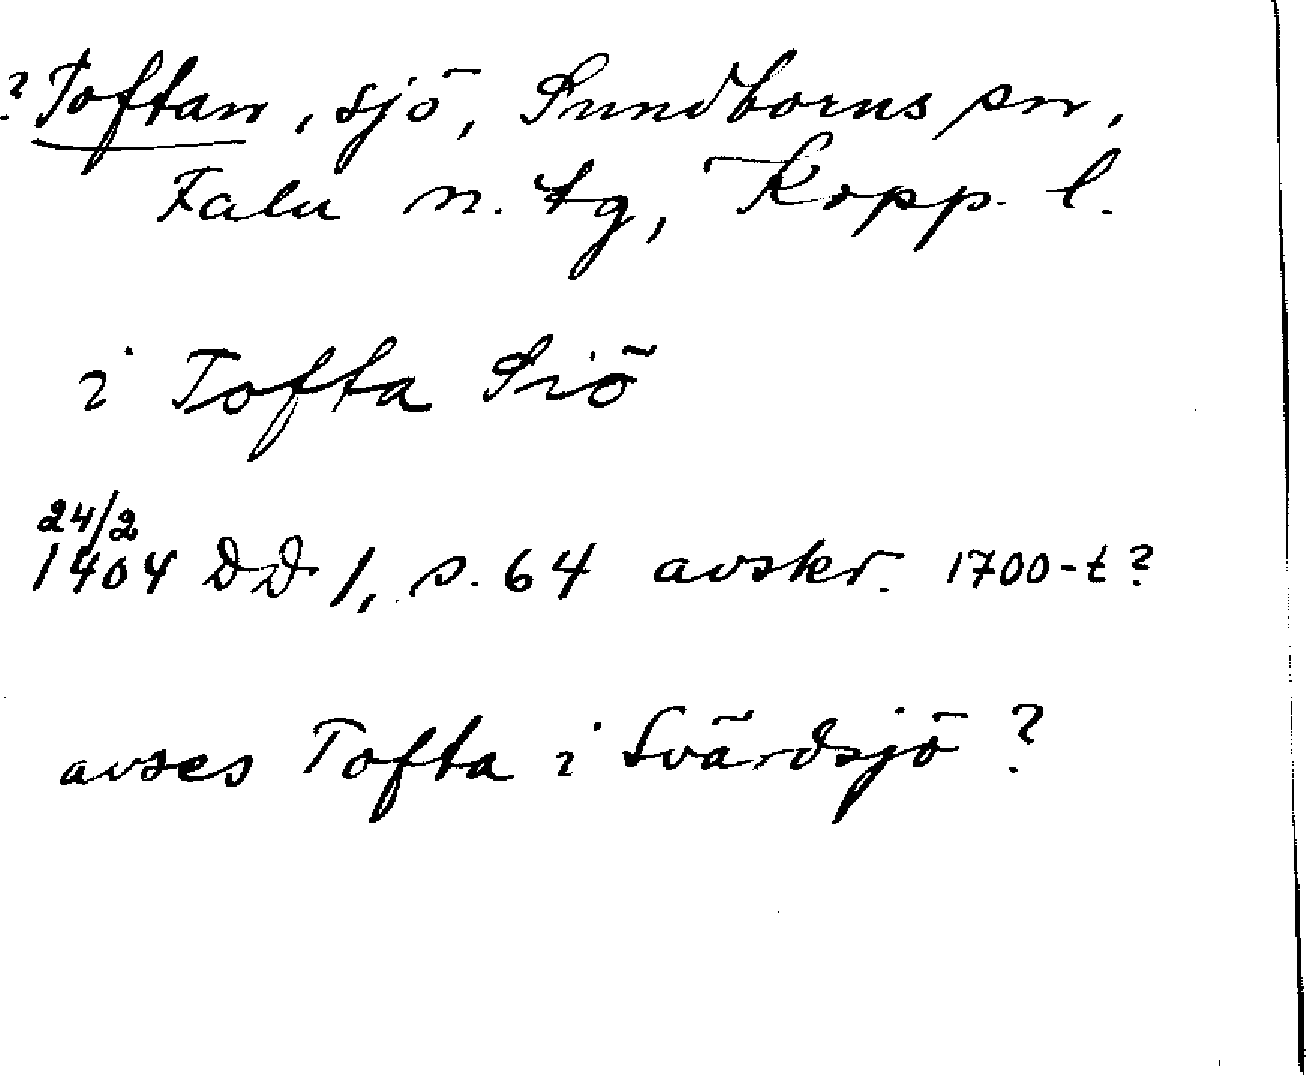 ? Toftan, sjö, Sundborns sn,
Falu n. tg, Kopp. l.
i Tofta Siö
24/2
1404 DD 1, s. 64 avskr. 1700-t?
avses Tofta i Svärdsjö?